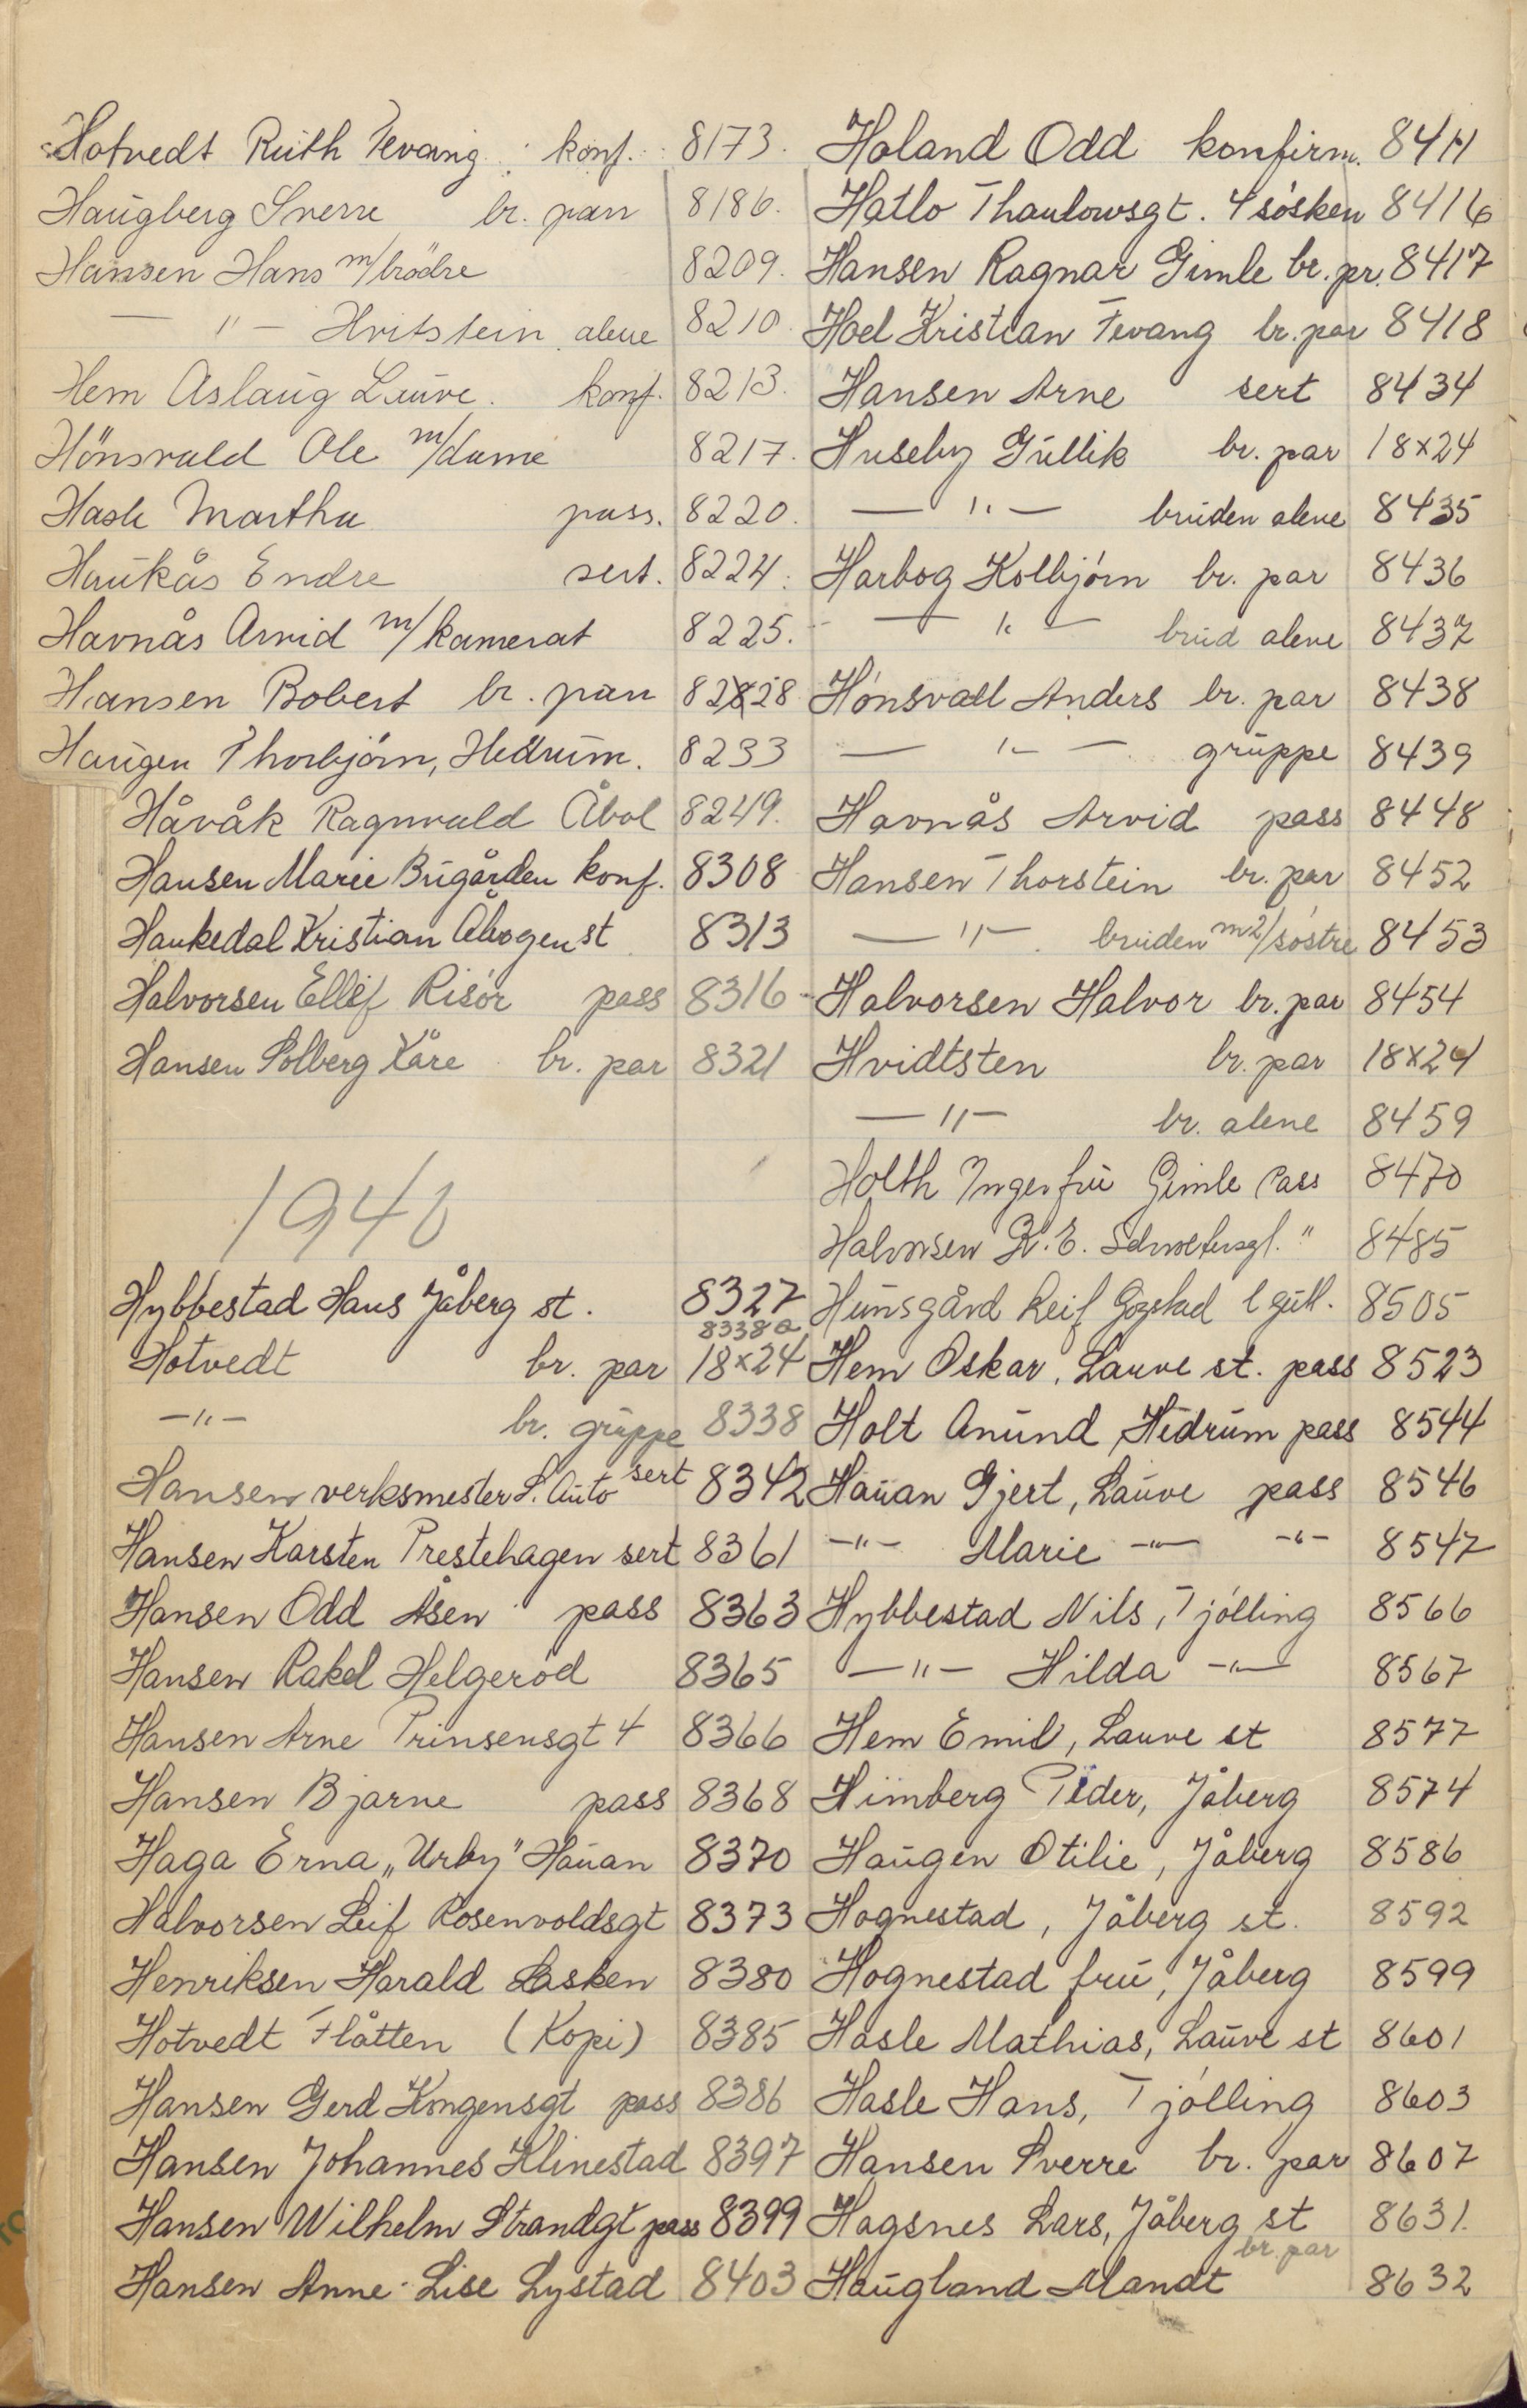 Hotvedt Ruth Tevang konf. 8173.
Haugberg Sverre br. par 8186.
Hansen Hans m/brödre 8209.
— " — Hvitstein alene 8210.
Hem Aslaug Lauve. konf. 8213.
Hönsvald Ole m/dame 8217.
Hasle Martha pass. 8220.
Haukås Endre sert. 8224.
Havnås Arvid m/kamerat 8225.
Hansen Robert br. par 8228
Haugen Thorbjörn, Hedrum. 8233
Håvåk Ragnvald Åbol 8249.
Hansen Marie Bugården konf. 8308
Haukedal Kristian Åbogen st 8313
Halvorsen Ellef Risör pass 8316
Hansen Solberg Kåre br. par 8321
1940
Hybbestad Hans Jåberg st. 8327
8338a
Hotvedt br. par 18x24
— " — br. gruppe 8338
Hansen verksmester L. Auto sert 8342
Hansen Karsten Prestehagen sert 8361
Hansen Odd Åsen pass 8363
Hansen Rakel Helgeröd 8365
Hansen Arne Prinsensgt 4 8366
Hansen Bjarne pass 8368
Haga Erna „Urby" Hauan 8370
Halvorsen Leif Rosenvoldsgt 8373
Henriksen Harald Lasken 8380
Hotvedt Flåtten (Kopi) 8385
Hansen Gerd Kongensgt pass 8386
Hansen Johannes Klinestad 8397
Hansen Wilhelm Strandgt pass 8399
Hansen Anne-Lise Lystad 8403
Holand Odd konfirm. 8411
Hatlo Thaulowsgt. 4 sösken 8416
Hansen Ragnar Gimle br. pr. 8417
Hoel Kristian Tevang br. par 8418
Hansen Arne sert 8434
Huseby Gullik br. par 18x24
— " — bruden alene 8435
Harbog Kolbjörn br. par 8436
— " — brud alene 8437
Hönsvall Anders br. par 8438
— " — gruppe 8439
Havnås Arvid pass 8448
Hansen Thorstein br. par 8452
— " — bruden m2/söstre 8453
Halvorsen Halvor br. par 8454
Hvidtsten br. par 18x24
— " — br. alene 8459
Holth Inger fru Gimle Pass 8470
Halvorsen K. E. " 8485
Hunsgård Leif Gogstad 8505
Hem Oskar, Lauve st. pass 8523
Holt Anund Hedrum pass 8544
Hauan Gjert, Lauve pass 8546
— " — Marie — " — — " — 8547
Hybbestad Nils, Tjölling 8566
— " — Hilda — " — 8567
Hem Emil, Lauve st 8577
Himberg Peder, Jåberg 8574
Haugen Otilie, Jåberg 8586
Hognestad, Jåberg st. 8592
Hognestad fru, Jåberg 8599
Hasle Mathias, Lauve st 8601
Hasle Hans, Tjölling 8603
Hansen Sverre br. par 8607
Hagsnes Lars, Jåberg st 8631.
br. par
Haugland Mandt 8632